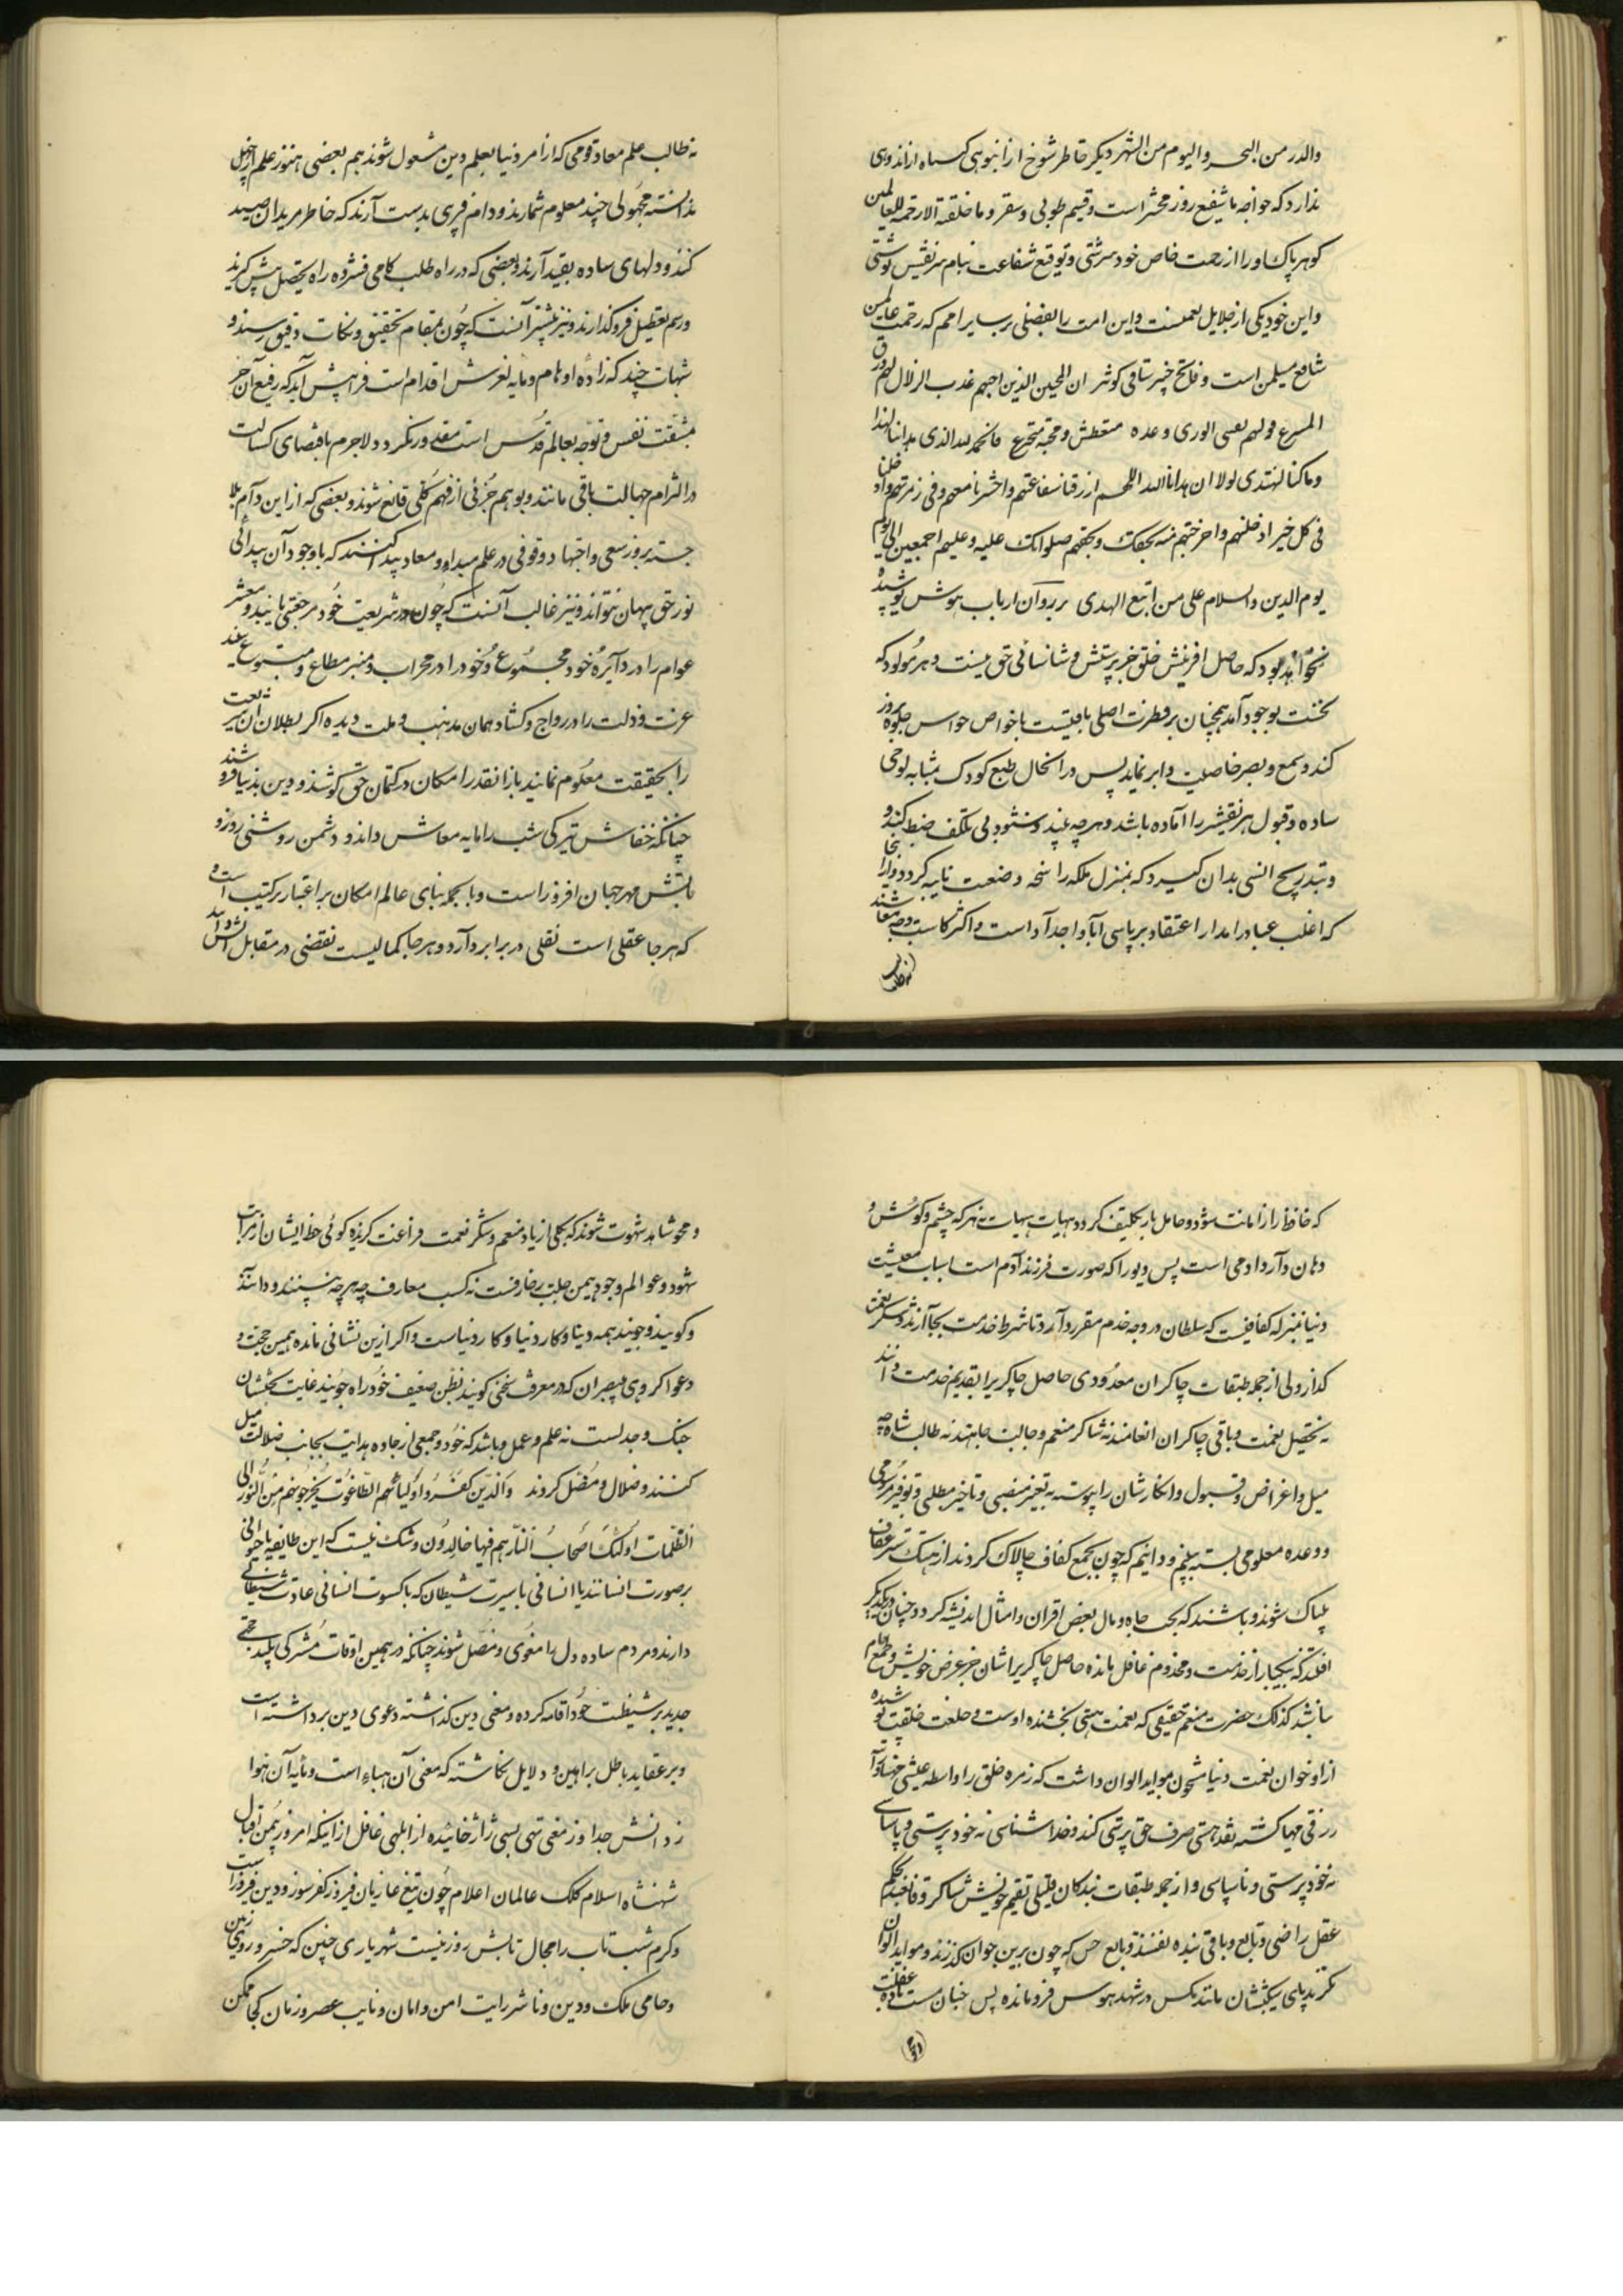 والدر من البحر والیوم من الشهر دیکر خاطر شوخ از انبوهی کسناه اندوهی
ندارد که خواجه ما شفیع روز محشر است و قسیم طوبی و سقر و ما خلقته الا رحمة للعالمین
کوهر پاک او را از رحمت خاص خود سرشتی و توقیع شفاعت بنام هر نفیس نوشتی
واین خود یکی از جلایل نعمست واین امت را بفضلی بر سایر امم که رحمت عالمین
شافع مسلمین است و فاتح خیبر ساقی کوثر ان المحبین الذین اجبهم عذب الزلال لهم ورق
المسرع فولهم یعسی الوری وعده متعطش و محبه متجرع فالحمد لله الذی هدانا لهذا
وما کنا لنهتدی لولا ان هدانا الله اللهم ارزقنا شفاعتهم واحشرنا معهم وفی زمرتهم وادخلنا
فی کل خیر ادخلتهم واخرجتهم منه بحقک وبحقهم صلواتک علیه وعلیهم اجمعین الی یوم
یوم الدین والسلام علی من اتبع الهدی بر روان ارباب هوش پوشیده
نخواهد بود که حاصل افرینش خلق جز پرستش و شناسائی حق نیست و هر مولود که
نخست بوجود آمد همچنان بر فطرت اصلی باقیست با خواص حواس جلوه بروز
کند و سمع و بصر خاصیت وابر نماید پس در انحال طبع کودک بمثابه لوحی
ساده و قبول هر نقشی را آماده باشد و هر چه بیند و شنود بی تکلف ضبط کند و
بتدریج انسی بدان کیرد که بمنزل ملکه راسخه و ضعت ثانیه کردد و از انجا
که اغلب عباد را مدار اعتقاد بر پاسی آبا و اجداد است و اکثر کاسب وجه معاشند
نه طالب
نه طالب علم معاد و قومی که از امر دنیا بعلم دین مشعول شوند هم بعضی هنوز علم از جهل
ندانسته مجهولی چند معلوم شمارند و دام فریبی بدست آرند که خاطر مریدان صید
کنند و دلهای ساده بقید آرند و بعضی که در راه طلب کامی فشرده راه تحصیل پیش کیرند
ورسم تعطیل فرو کذارند و نیز بیشتر آنست که چون بمقام تحقیق و نکات دقیق رسند و
شبهات چند که زاده اوهام و مایه لغزش اقدام است فرا پیش آید که رفع آن جز
بمشقت نفس و توجه بعالم قدس است مقدور نکردد و لاجرم باقتضای کسالت
در التزام جهالت باقی مانند و بوهم جزئی از فهم کلی قانع شوند و بعضی که از این دام بلا
جسته بروز سعی و اجتهاد وقوفی در علم مبدا و معاد پیدا کنند که با وجود آن پیدائی
نور حق پنهان نتواند و نیز غالب آنست که چون در شریعت خود مرجعی یابند و معشر
عوام را در دآئره خود مجموع و خود را در محراب و منبر مطاع و متبوع بیند
عزت و ذلت را در رواج و کشاد همان مذهب و ملت دیده اکر بطلان آن شریعت
را بحقیقت معلوم نمایند باز انقدر امکان در کتمان حق کوشند و دین بدنیا فروشند
چنانکه خفاش تیرکی شب را مایه معاش داند و دشمن روشنی روز و
تابش مهر جهان افروز است و بالجمله بنای عالم امکان بر اعتبار ترکیب است و
که هر جا عقلی است نقلی در برابر دارد و هر جا کمالیست نقصی در مقابل
که حافظ راز امانت شود و حامل بار تکلیف کردد هیهات هیهات نه هر که چشم و کوش و
دهان دارد آدمی است پس دیو را که صورت فرزند آدم است اسباب معیشت
دنیا بمنزله کفافیست که سلطان در وجه خدم مقرر دارد تا شرط خدمت بجا آرند و شکر نعمت
کذارند ولی از جمله طبقات چاکران معدودی حاصل چاکری را تقدیم خدمت دانند
نه تحصیل نعمت و باقی چاکران انعامند نه شاکر منعم و جالب جاهند نه طالب شاه چه
میل و اغراض و قبول و انکارشان را پیوسته به تغییر منصبی و تاخیر مطلبی و توفیر مرسومی
و وعده معلومی بسته بینیم و دانیم که چون بجمع کفاف چالاک کردند از هتک ستر عفاف
بیباک شوند و باشند که بحب جاه و مال بعض اقران و امثال اندیشه کردد و چنان در یکدیکر
افتند که بیکبار از خدمت و مخدوم غافل مانده حاصل چاکری را شان جز عرض خویش و طمع خام
نباشد کذلک حضرت منعم حقیقی که نعمت هستی بخشنده اوست و خلعت خلقت پوشیده
از او خوان نعمت دنیا مشحون بمواید الوان داشت که زمره خلق را واسطه عیشی مهنا و آماده
رزقی مهیا کشته نقد هستی صرف حق پرستی کند و خدا شناسی نه خود پرستی و پاسای
نه خود پرستی و ناسپاسی و از جمله طبقات بندکان قلیلی بقسیم خویش شاکر و قانعند بحکم
عقل راضی و تابع و باقی بنده نفسند و تابع حس که چون بر این خوان کذرند و مواید الوان
نکرند پای بکششان مانند مکس در شهد هوس فرو مانده پس چنان مست باده غفلت
ومحو
و محو شاهد شهوت شوند که بکلی از یاد منعم و شکر نعمت فراغت کزیده کوئی حظ ایشان از مراتب
شهود و عوالم وجود همین جلب زخارفست نه کسب معارف چه هر چه بینند و دانند
و کویند و جویند همه دنیا و کار دنیا و کار دنیاست و اکر از دین نشانی مانده همین حجت و
دعوا کروهی پیمبران که در معرفت سخنی کویند بظن ضعیف خود راه جویند غایت بحثشان
جنک و جدلست نه علم و عمل و باشد که خود و جمعی از جاده هدایت بجانب ضلالت میل
کنند و ضلال و مضل کردند والذین کفروا اولیائهم الطاغوت یخرجونهم من النور الی
الظلمات اولئک اصحاب النار هم فیها خالدون و شک نیست که این طایفه یا حیوانی
بر صورت انسانند یا انسانی با سیرت شیطان که با کسوت انسانی عادت شیطانی
دارند و مردم ساده دل را مغوی و مضل شوند چنانکه در همین اوقات مشرکی پلید حجتی
جدید بر شیطنت خود اقامه کرده و معنی دین کذاشته دعوی دین برداشته است
و بر عقاید باطل براهین و دلایل نکاشته که معنی آن هباء است و مایه آن هوا
زدانش جدا وز معنی تهی بسی ژاژ خائیده از ابلهی غافل از اینکه امروز بیمن اقبال
شهنشاه اسلام کلک عالمان اعلام چون تیغ غازیان فیروز کفر سوز و دین فروز است
و کرم شب تاب را مجال تابش روز نیست شهریاری چنین که خسرو روی زمین
و حامی ملک و دین و ناشر رایت امن و امان و نایب عصر و زمان کجا ممکن